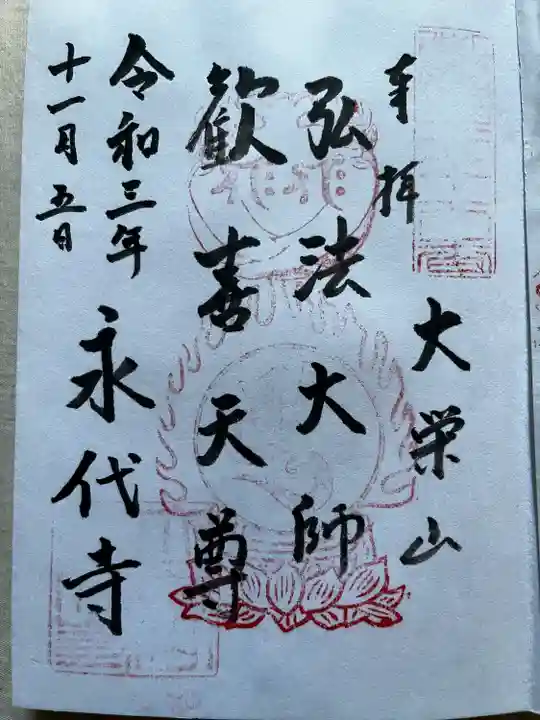 奉拝
大栄山
弘法大師
歓喜天尊
令和三年
十一月五日
永代寺